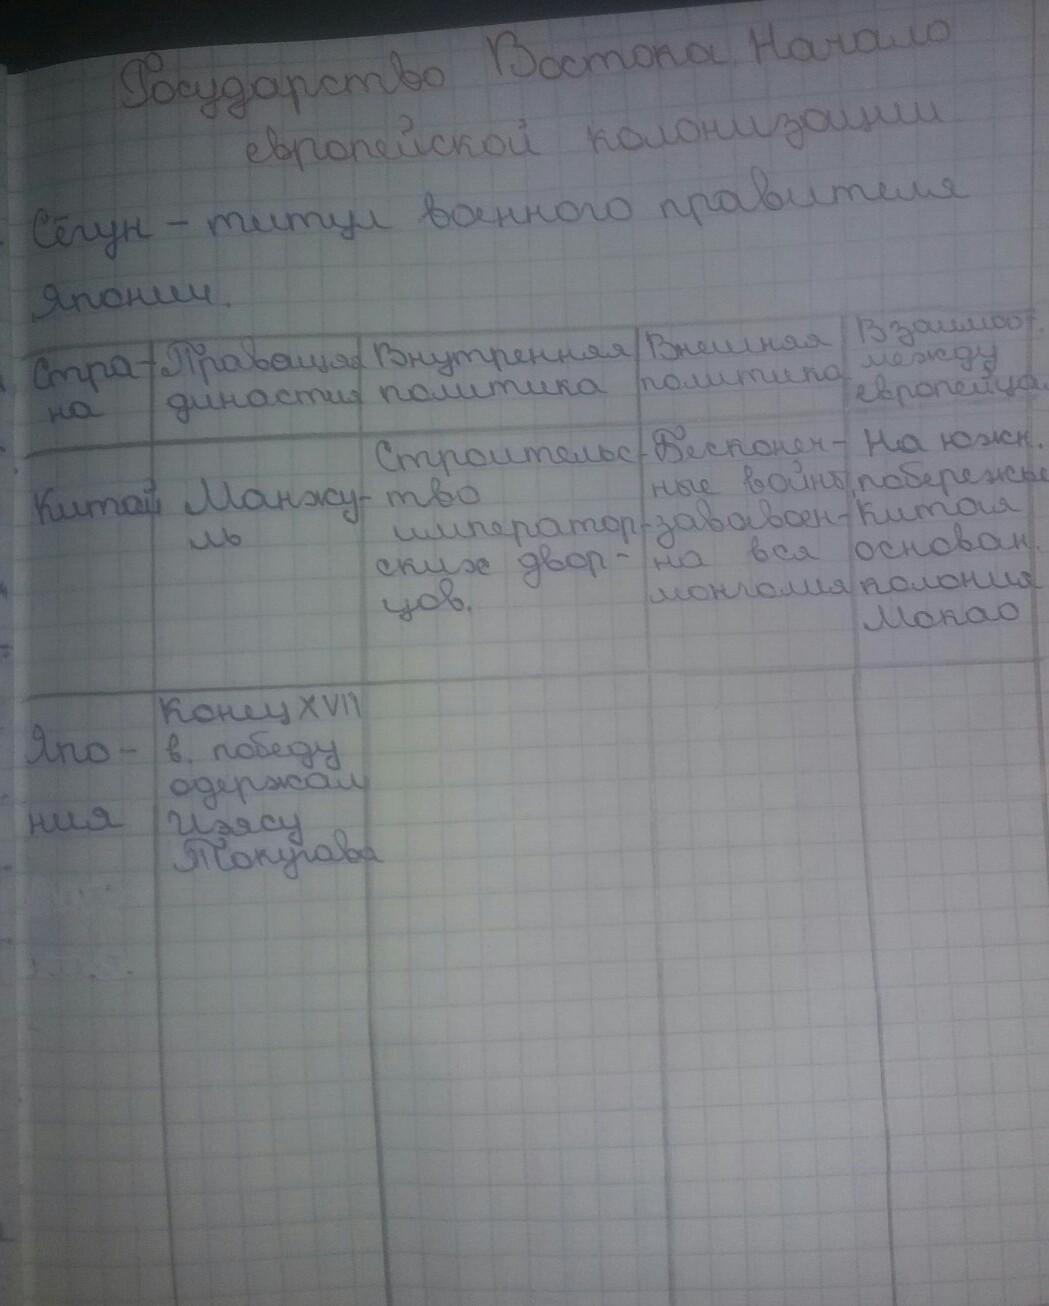 Государство Востока. Начало
европейской колонизации
Сёгун - титул военного правителя
Японии.
Стра-
на
Правещая
династия
Внутренняя
политика
Внешняя
политика
Взаимоот.
между
европейца.
Китай
Манжу-
ль
Строительс-
тво
император-
ских двор-
цов.
Бесконен-
ные войны,
зававоен-
на вся
монголия
На южн.
побережье
Китая
основан.
колония
Макао
Япо-
ния
Конец XVII
в. победу
одержал
Иэясу
Токугава